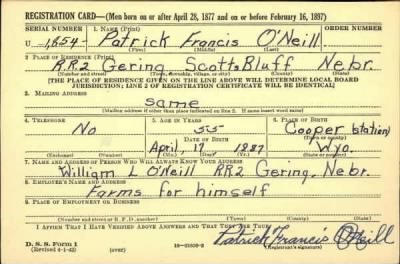 REGISTRATION CARD—(Men born on or after April 28, 1877 and on or before February 16, 1897)
SERIAL NUMBER 1. NAME (Print) ORDER NUMBER
U 1854 Patrick Francis O'Neill
(First) (Middle) (Last)
2. PLACE OF RESIDENCE (Print)
R.R.2 Gering Scotts Bluff Nebr.
(Number and street) (Town, township, village, or city) (County) (State)
[THE PLACE OF RESIDENCE GIVEN ON THE LINE ABOVE WILL DETERMINE LOCAL BOARD
JURISDICTION; LINE 2 OF REGISTRATION CERTIFICATE WILL BE IDENTICAL]
3. MAILING ADDRESS
same
(Mailing address if other than place indicated on line 2. If same insert word same)
4. TELEPHONE 5. AGE IN YEARS 6. PLACE OF BIRTH
No 55 Cooper (station)
DATE OF BIRTH (Town or county)
April, 17 1887 Wyo.
(Exchange) (Number) (Mo.) (Day) (Yr.) (State or country)
7. NAME AND ADDRESS OF PERSON WHO WILL ALWAYS KNOW YOUR ADDRESS
William L O'Neill RR2 Gering, Nebr.
8. EMPLOYER'S NAME AND ADDRESS
Farms for himself
9. PLACE OF EMPLOYMENT OR BUSINESS
(Number and street or R. F. D. number) (Town) (County) (State)
I AFFIRM THAT I HAVE VERIFIED ABOVE ANSWERS AND THAT THEY ARE TRUE.
D. S. S. Form 1
(Revised 4-1-42) (over) Patrick Francis O'Neill
(Registrant's signature)